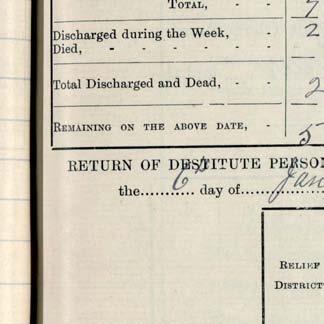 TOTAL, - - 7
Discharged during the Week, - 2
Died, - - - - - —
Total Discharged and Dead, - - 2
REMAINING ON THE ABOVE DATE, - 5
RETURN OF DESTITUTE PERSON
the........... day of..................
6th Jan
RELIEF
DISTRICT